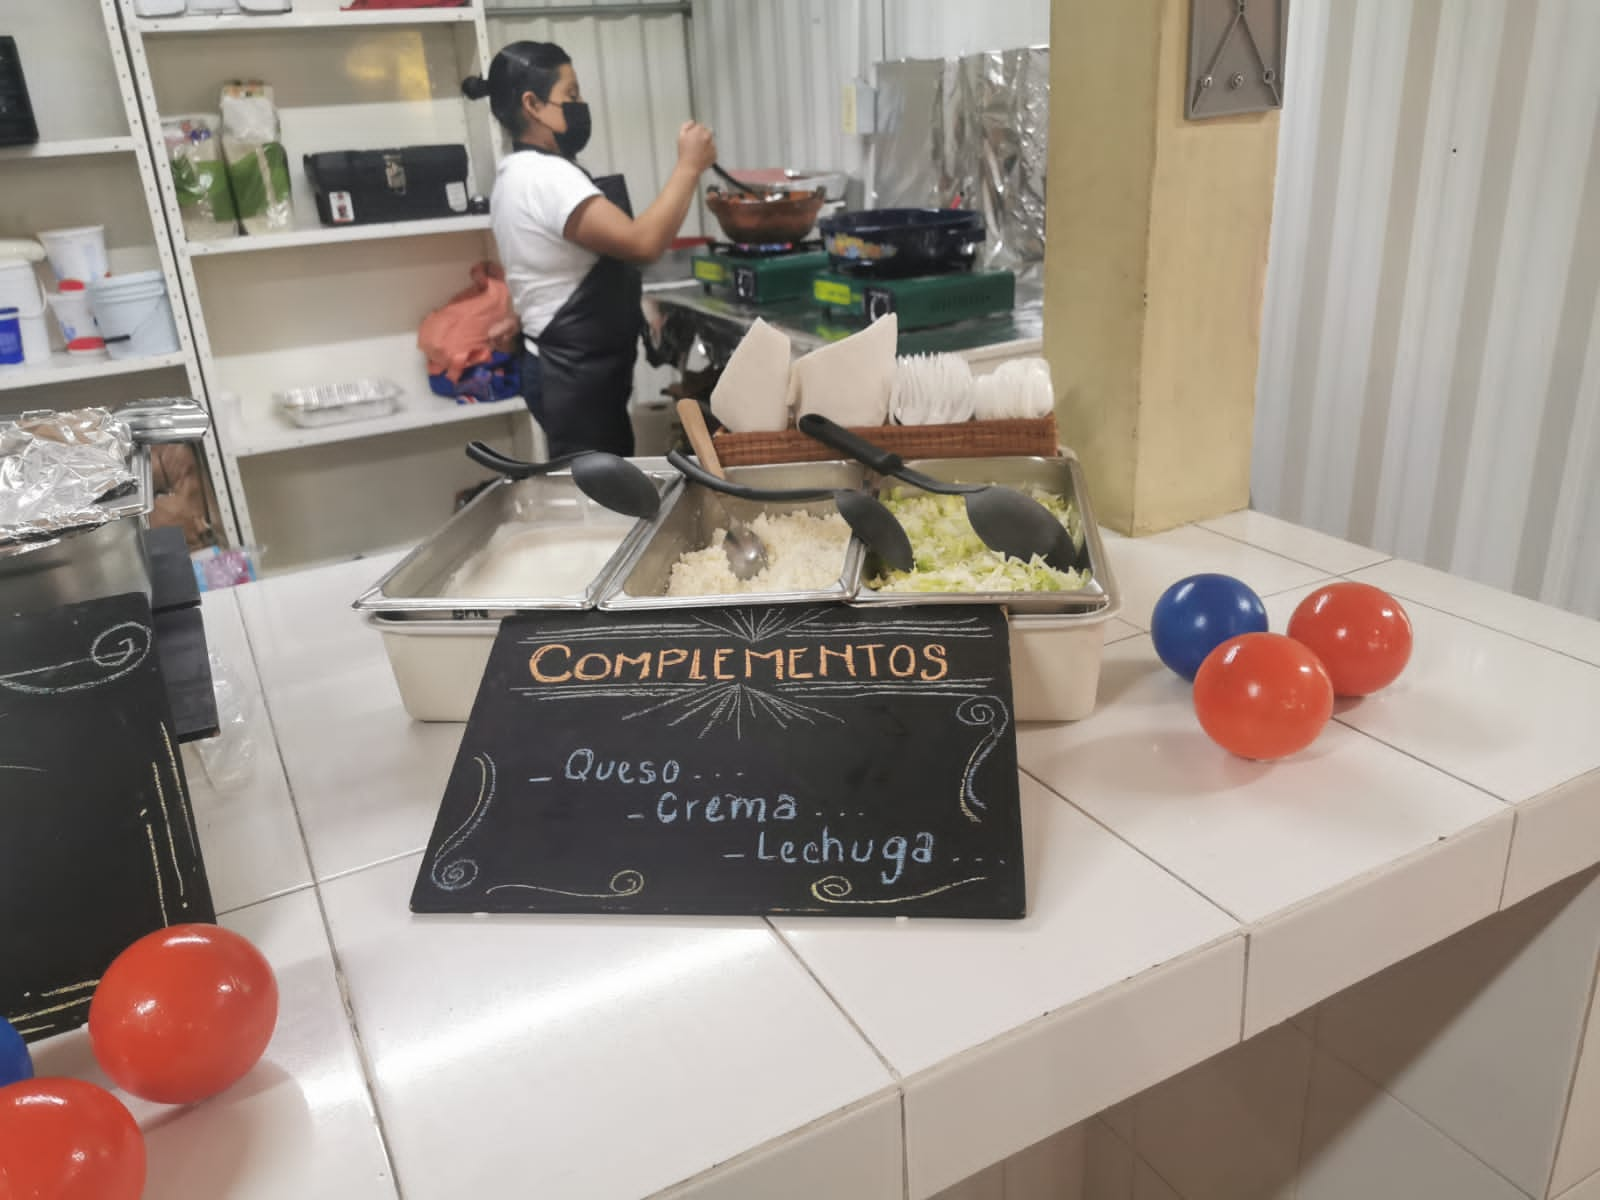 COMPLEMENTOS
- Queso...
- Crema...
- Lechuga...